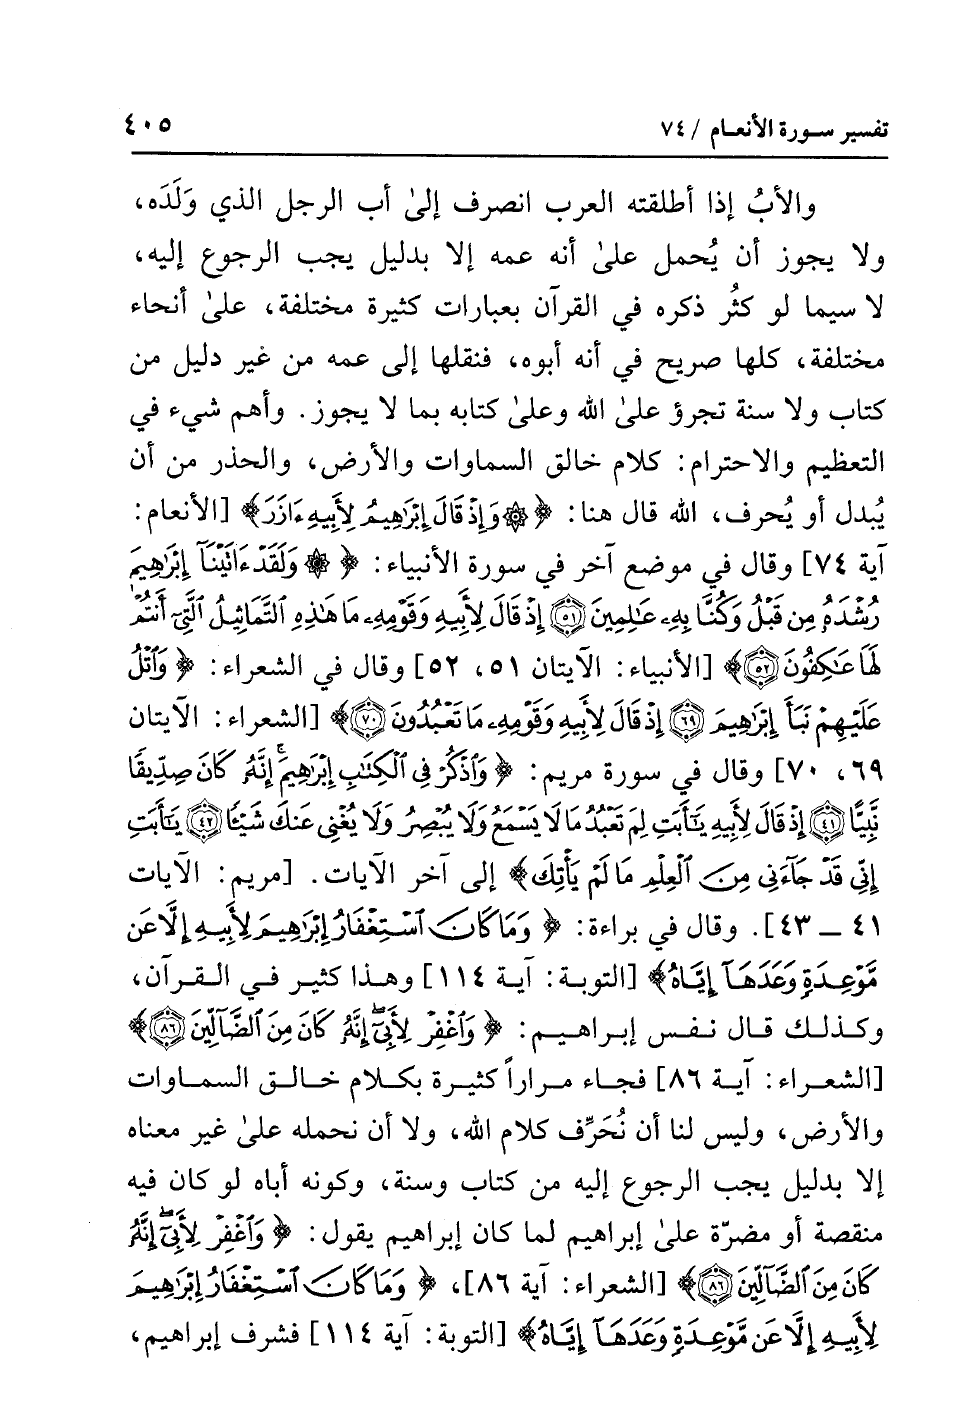 تفسير سورة الأنعام / ٧٤ ٤٠٥
والأبُ إذا أطلقته العرب انصرف إلىٰ أب الرجل الذي وَلَدَه،
ولا يجوز أن يُحمل علىٰ أنه عمه إلا بدليل يجب الرجوع إليه،
لا سيما لو كثُر ذكره في القرآن بعبارات كثيرة مختلفة، علىٰ أنحاء
مختلفة، كلها صريح في أنه أبوه، فنقلها إلى عمه من غير دليل من
كتاب ولا سنة تجرؤ علىٰ الله وعلىٰ كتابه بما لا يجوز. وأهم شيء في
التعظيم والاحترام: كلام خالق السماوات والأرض، والحذر من أن
يُبدل أو يُحرف، الله قال هنا: ﴿۞ وَإِذْ قَالَ إِبْرَٰهِيمُ لِأَبِيهِ ءَازَرَ﴾ [الأنعام:
آية ٧٤] وقال في موضع آخر في سورة الأنبياء: ﴿۞ وَلَقَدْ ءَاتَيْنَآ إِبْرَٰهِيمَ
رُشْدَهُۥ مِن قَبْلُ وَكُنَّا بِهِۦ عَٰلِمِينَ ٥١ إِذْ قَالَ لِأَبِيهِ وَقَوْمِهِۦ مَا هَٰذِهِ ٱلتَّمَاثِيلُ ٱلَّتِىٓ أَنتُمْ
لَهَا عَٰكِفُونَ ٥٢﴾ [الأنبياء: الآيتان ٥١، ٥٢] وقال في الشعراء: ﴿وَٱتْلُ
عَلَيْهِمْ نَبَأَ إِبْرَٰهِيمَ ٦٩ إِذْ قَالَ لِأَبِيهِ وَقَوْمِهِۦ مَا تَعْبُدُونَ ٧٠﴾ [الشعراء: الآيتان
٦٩، ٧٠] وقال في سورة مريم: ﴿وَٱذْكُرْ فِى ٱلْكِتَٰبِ إِبْرَٰهِيمَ ۚ إِنَّهُۥ كَانَ صِدِّيقًا
نَّبِيًّا ٤١ إِذْ قَالَ لِأَبِيهِ يَٰٓأَبَتِ لِمَ تَعْبُدُ مَا لَا يَسْمَعُ وَلَا يُبْصِرُ وَلَا يُغْنِى عَنكَ شَيْـًٔا ٤٢ يَٰٓأَبَتِ
إِنِّى قَدْ جَآءَنِى مِنَ ٱلْعِلْمِ مَا لَمْ يَأْتِكَ﴾ إلى آخر الآيات. [مريم: الآيات
٤١ ــ ٤٣]. وقال في براءة: ﴿وَمَا كَانَ ٱسْتِغْفَارُ إِبْرَٰهِيمَ لِأَبِيهِ إِلَّا عَن
مَّوْعِدَةٍ وَعَدَهَآ إِيَّاهُ﴾ [التوبة: آية ١١٤] وهذا كثير في القرآن،
وكذلك قال نفس إبراهيم: ﴿وَٱغْفِرْ لِأَبِىٓ إِنَّهُۥ كَانَ مِنَ ٱلضَّآلِّينَ ٨٦﴾
[الشعراء: آية ٨٦] فجاء مراراً كثيرة بكلام خالق السماوات
والأرض، وليس لنا أن نُحَرِّف كلام الله، ولا أن نحمله علىٰ غير معناه
إلا بدليل يجب الرجوع إليه من كتاب وسنة، وكونه أباه لو كان فيه
منقصة أو مضرّة علىٰ إبراهيم لما كان إبراهيم يقول: ﴿وَٱغْفِرْ لِأَبِىٓ إِنَّهُۥ
كَانَ مِنَ ٱلضَّآلِّينَ ٨٦﴾ [الشعراء: آية ٨٦]، ﴿وَمَا كَانَ ٱسْتِغْفَارُ إِبْرَٰهِيمَ
لِأَبِيهِ إِلَّا عَن مَّوْعِدَةٍ وَعَدَهَآ إِيَّاهُ﴾ [التوبة: آية ١١٤] فشرف إبراهيم،